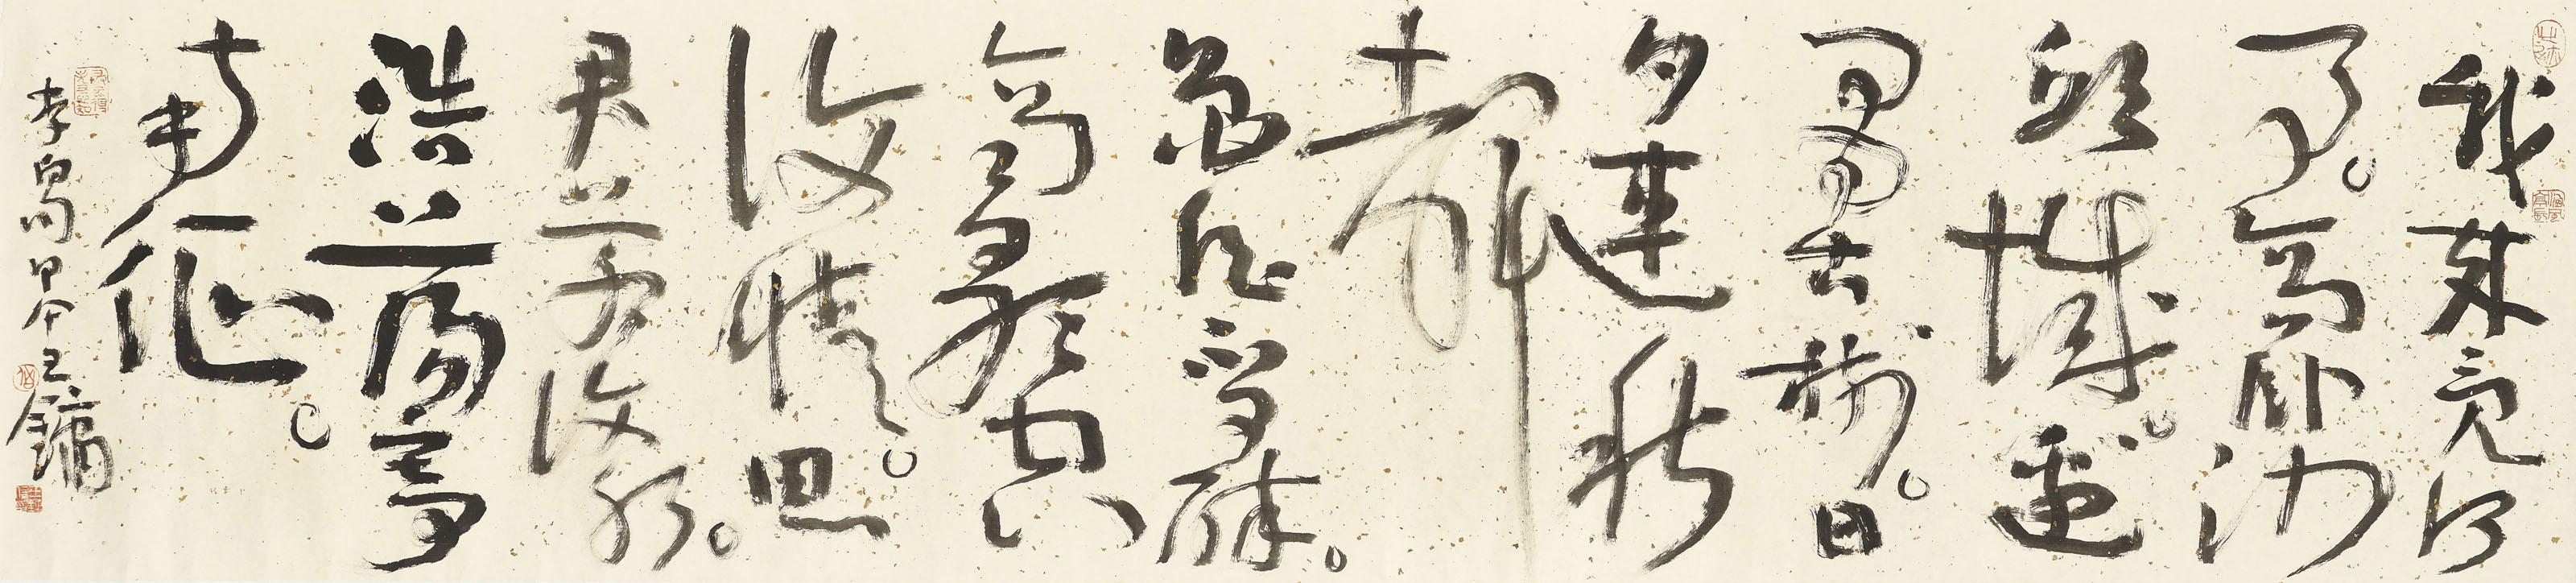 我来竟何
事。高卧沙
邱城。邊
有古樹。日
夕連秋
聲
魯酒不可醉。
齊歌空
復情。思
君若汶水。
浩蕩寄
南征。
李白 甲午王鏞